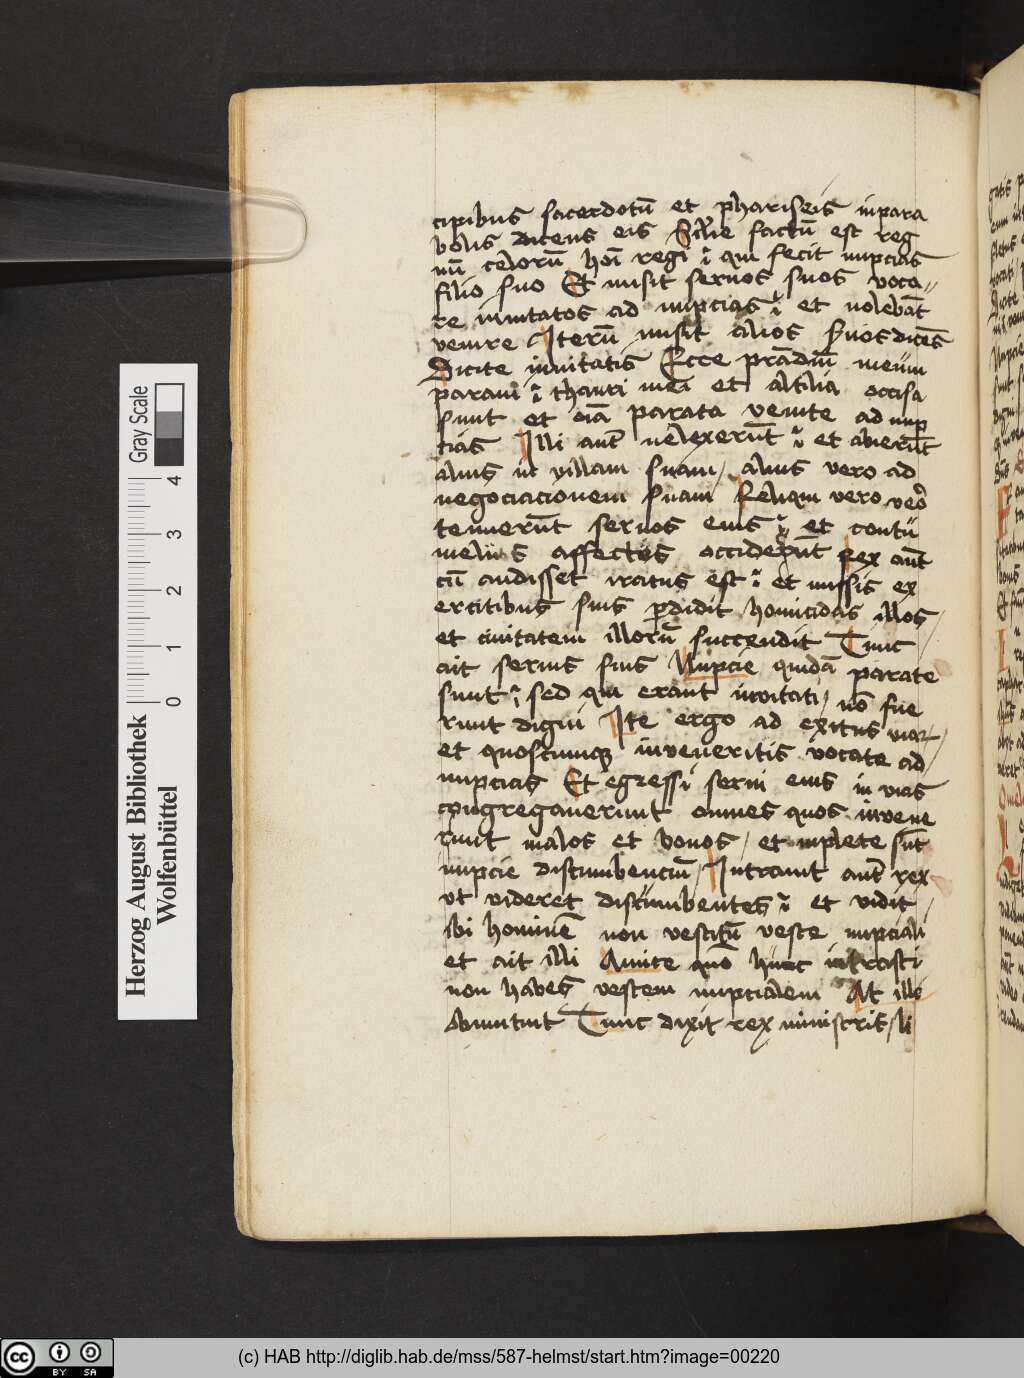 cipibus sacerdotū et phariseis inpara
bolis dicens eis Sīle factū est reg
nū celorū hoī regi qui fecit nupcias
filio suo Et misit seruos suos voca
re inuitatos ad nupcias et nolebāt
venire Iterū misit alios s̄uos dicēs
Dicite inuitatis Ecce prādiū meūm
paraui thauri mei et altilia occisa
sunt et oīa parata venite ad nup
cias Illi aut̄ neglexerūt et abierūt
alius in villam suam / alius vero ad
negociacionem suam Reliqui vero
tenuerūt seruos eius et contū
meliis affectos occiderūt Rex aut̄
cū audisset iratus est et missis ex
ercitibus suis p̄didit homicidas illos /
et ciuitatem illorū succendit Tunc
ait seruis suis Nupcie quidā parate
sunt sed qui erant invitati / nō fue
runt digni Ite ergo ad exitus viar /
et quoscumq̄ inveneritis vocate ad /
nupcias Et egressi serui eius in vias
congregauerunt omnes quos invene
runt malos et bonos / et inplete sūt
nupcie discumbenciū / Intrauit aut̄ rex
vt videret discumbentes et vidit /
ibi hominē non vestitū veste nupciali
et ait illi Amice quō huc intrasti
non habes vestem nupcialem At ille
obmutuit Tunc dixit rex ministris / li
Herzog August Bibliothek
Wolfenbüttel
Gray Scale
0 1 2 3 4
cc BY SA
(c) HAB http://diglib.hab.de/mss/587-helmst/start.htm?image=00220